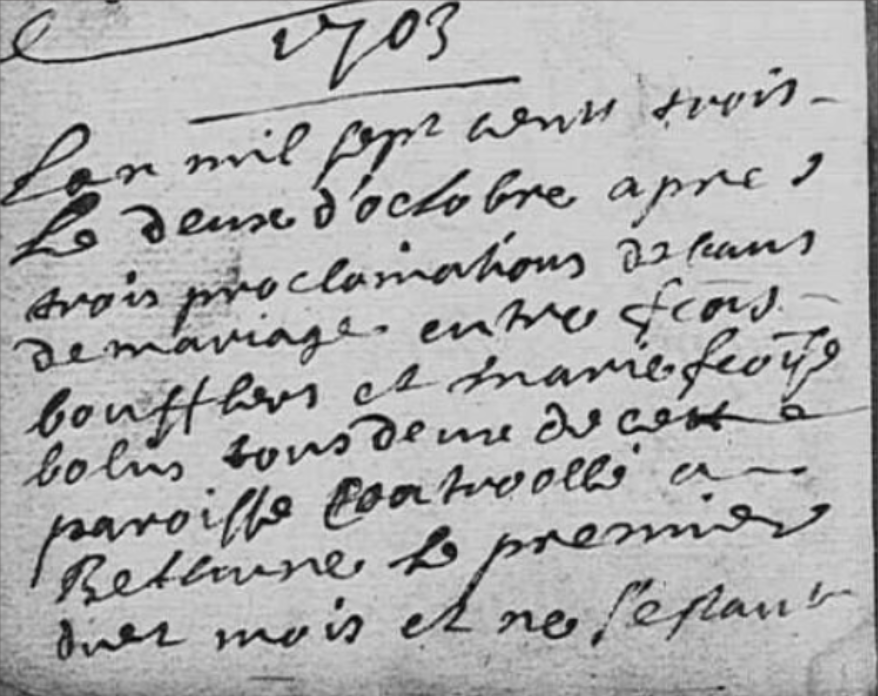 1703
Lan mil sept cents trois
Le deuxe d'octobre apres
trois proclamations de bans
de mariage entre fcois
boufflers et marie fcoise
bolin tous deux de cette
paroisse Controollé a
Bethune le premier
duet mois et ne s'estant